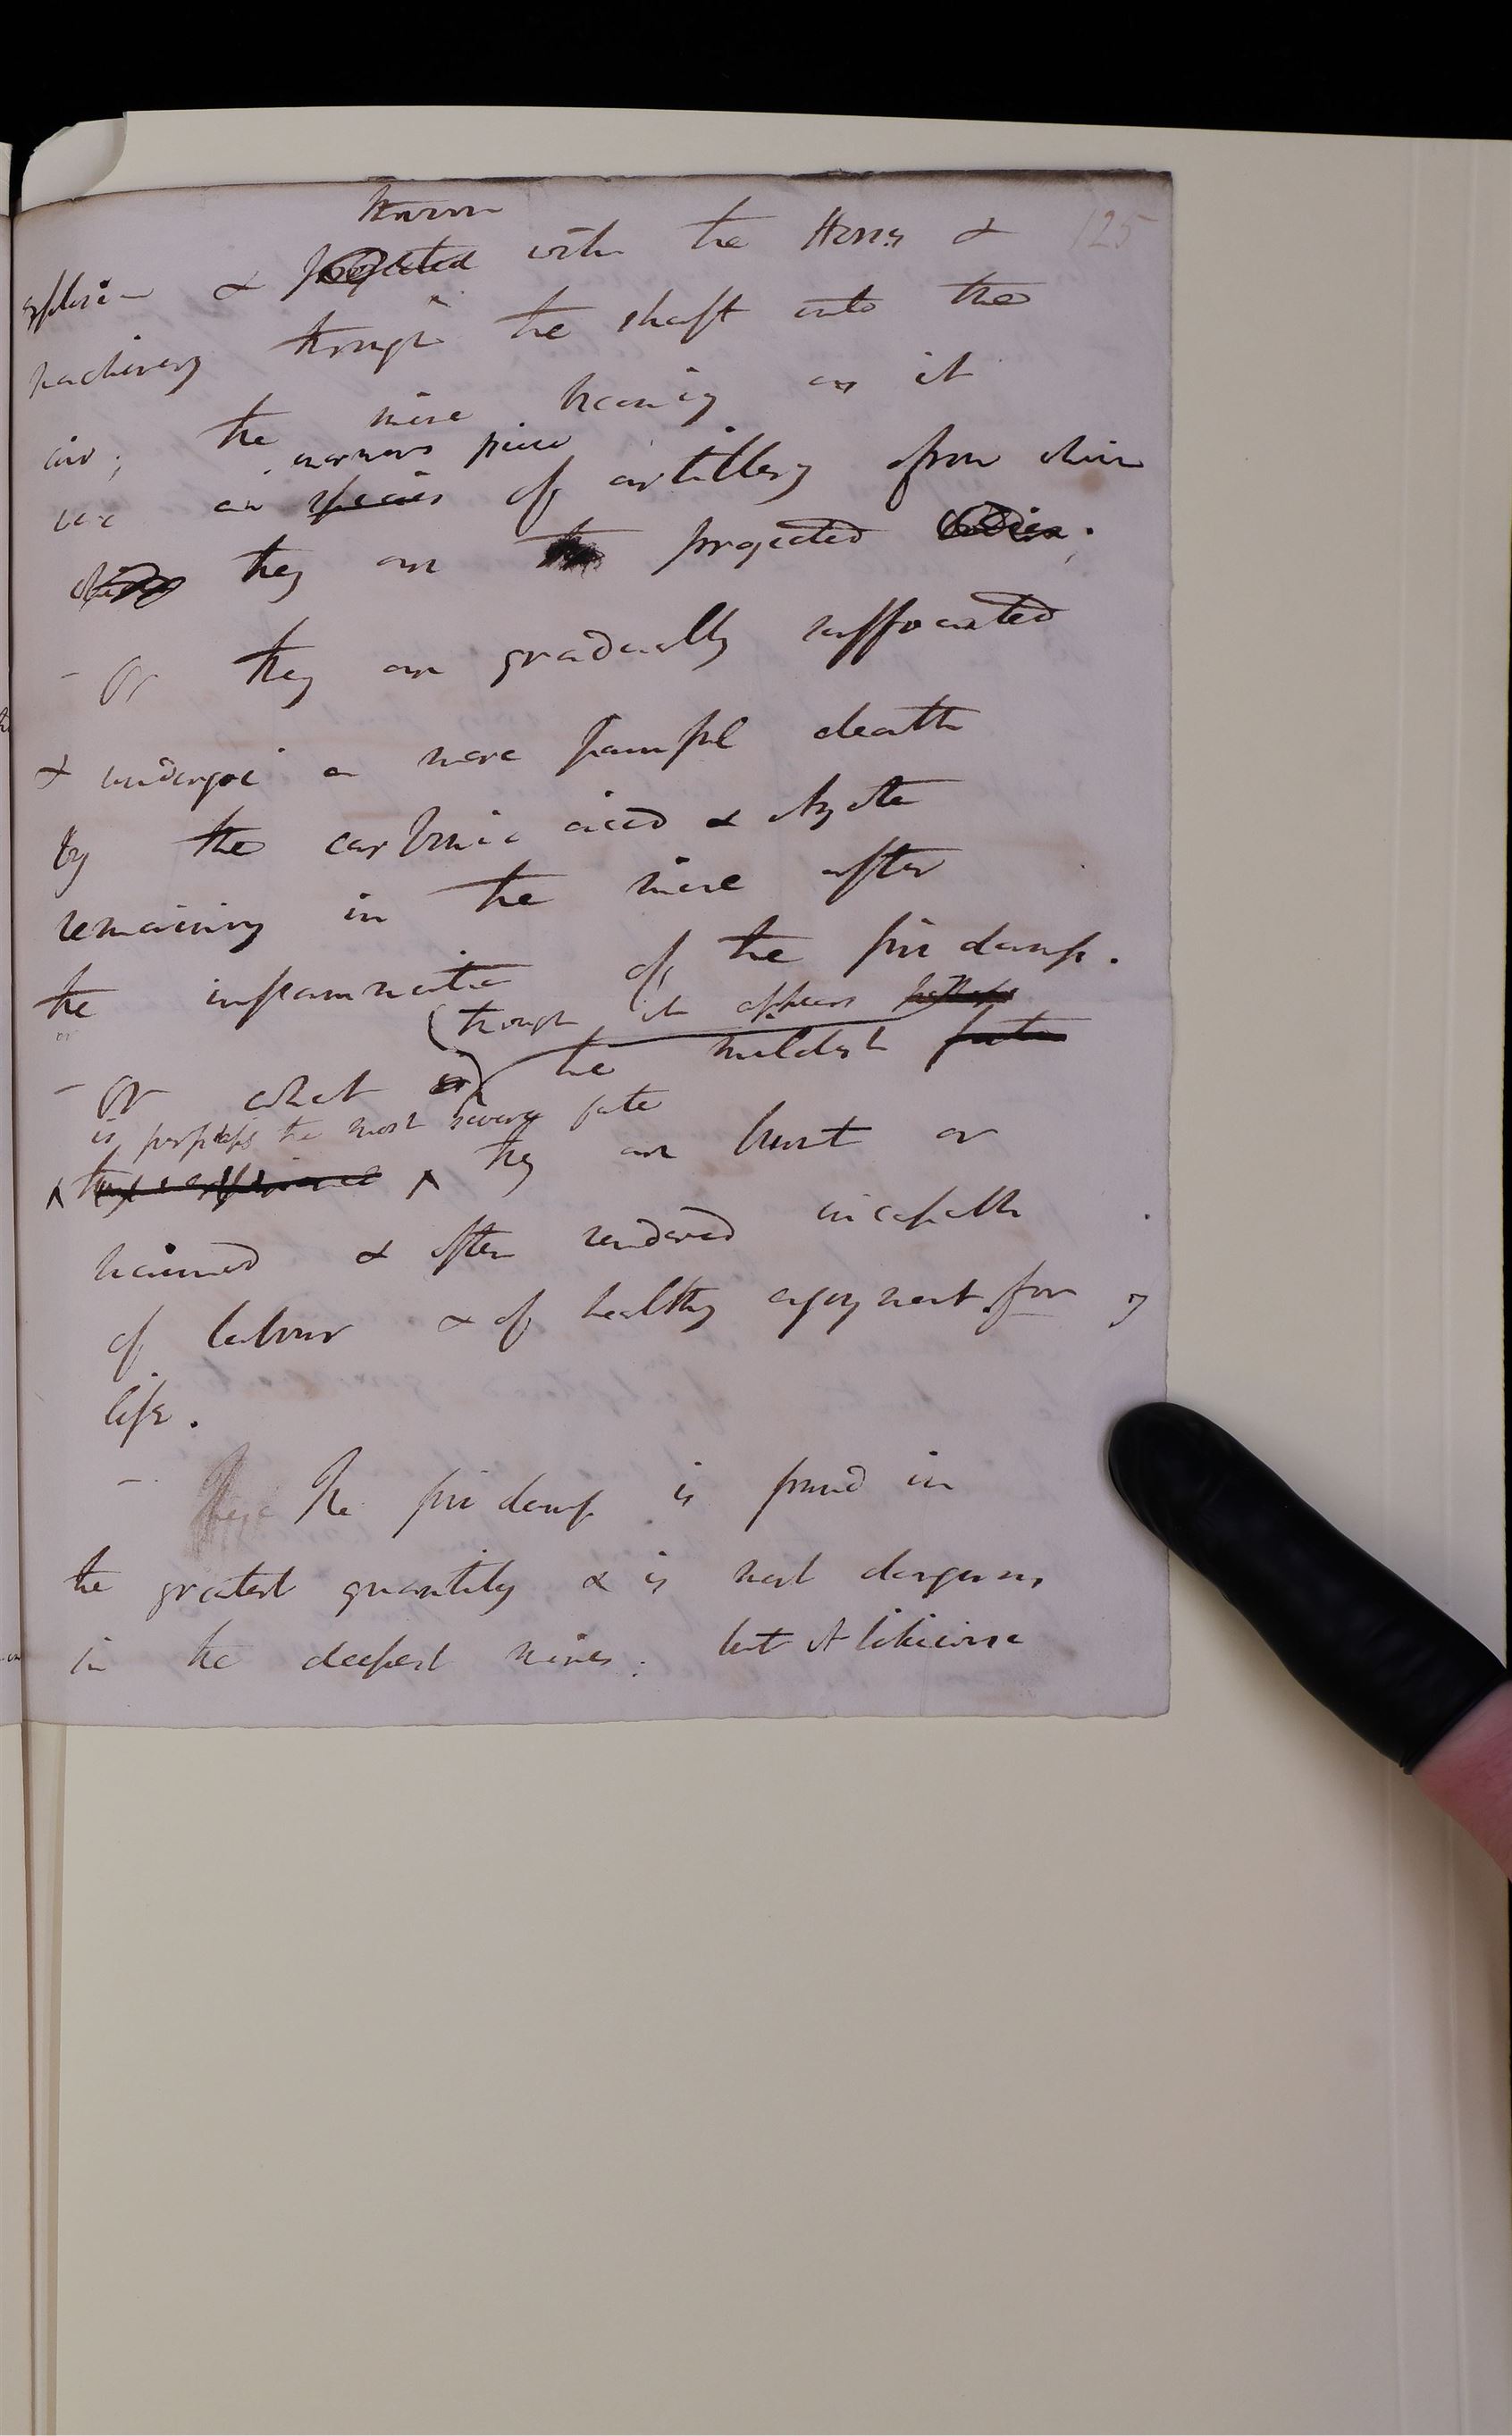 125
thrown
explosion & projected with the Horses &
machinery through the shaft into the
air; the mine becoming as it
enormous piece
were an species of artillery from which
they are projected bodies;
- Or they are gradually suffocated
& undergoe a more painful death
by the carbonic acid & Azote
remaining in the mine after
the inflammation of the fire damp.
(though it appears perhaps
- or what is) the mildest fate
is perhaps the most severe fate
they experience they are burnt or
maimed & often rendered incapable
of labour & of healthy enjoyment for
life.
- These The fire damp is found in
the greatest quantity & is most dangerous
in the deepest mines; but it likewise